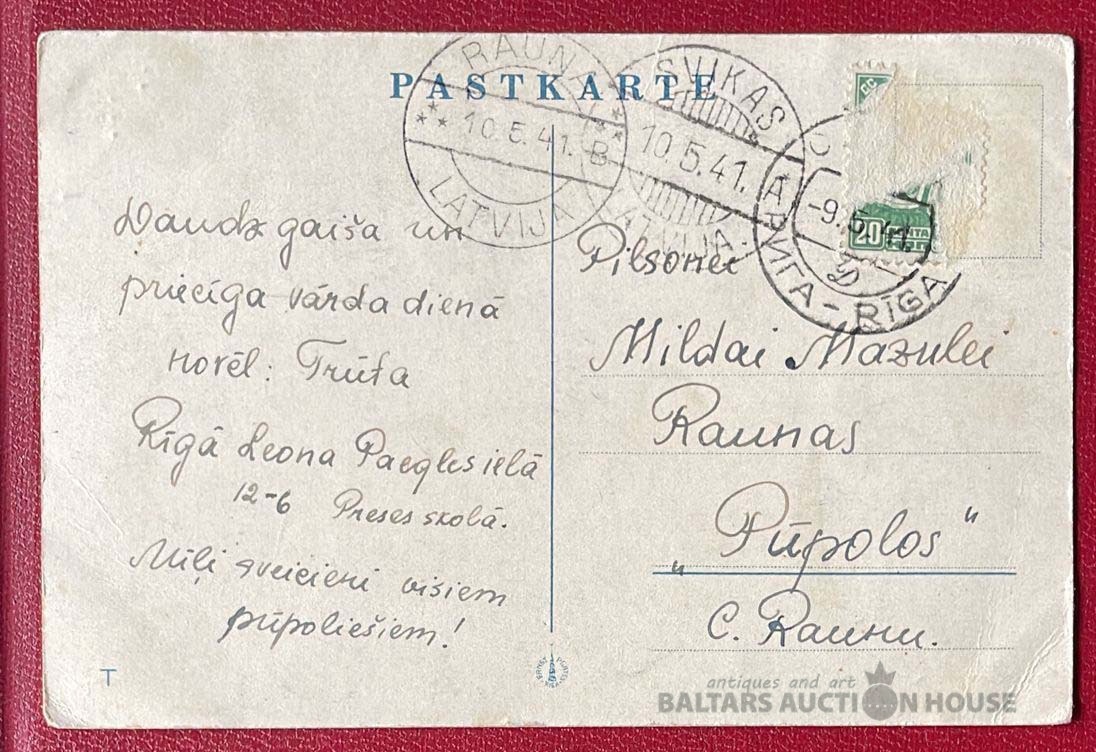 PASTKARTE
RAUNA
10.5.41. B
LATVIJA
SVIKAS
10.5.41.
LATVIJA.
-9.5.41.
РИГА - RĪGA
20
Daudz gaiša un
priecīga vārda dienā
novēl: Trūta
Rīgā Leona Paegles ielā
12-6 Preses skolā.
Mīļi sveicieni visiem
pūpoliešiem!
Pilsonei
Mildai Mazulei
Raunas
„Pūpolos"
c. Raunu.
T
antiques and art
BALTARS AUCTION HOUSE